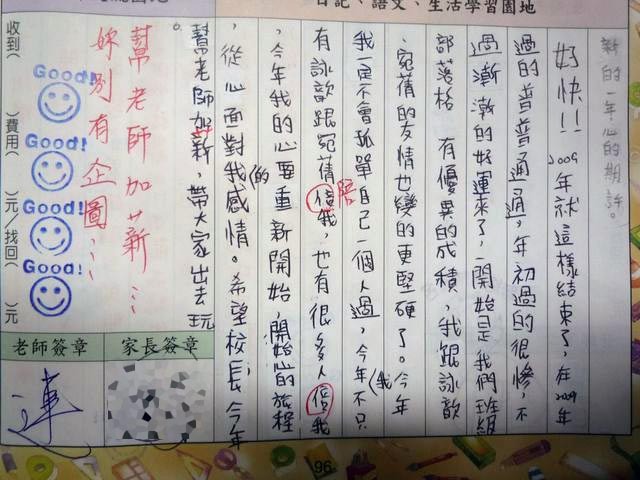 日記、語文、生活學習園地
新的一年,心的期許。
好快!!2009年就這樣結束了,在2009年
過的普普通通,年初過的很慘,不
過漸漸的好運來了,一開始是我們班級
部落格 有優異的成績,我跟詠歆
、宛蒨的友情也變的更堅硬了。今年
我一定不會孤單自己一個人過,今年(我不只
有詠歆跟宛蒨倍我,也有很多人倍我
陪
,今年我的心要重新開始,開始心的旅程
,從心面對我(的感情。希望校長今年
幫老師加薪,帶大家出去玩
。
幫老師加薪…
妳別有企圖…
Good!
Good!
Good!
Good!
收到( )費用( )元/找回( )元
老師簽章
家長簽章
連
96